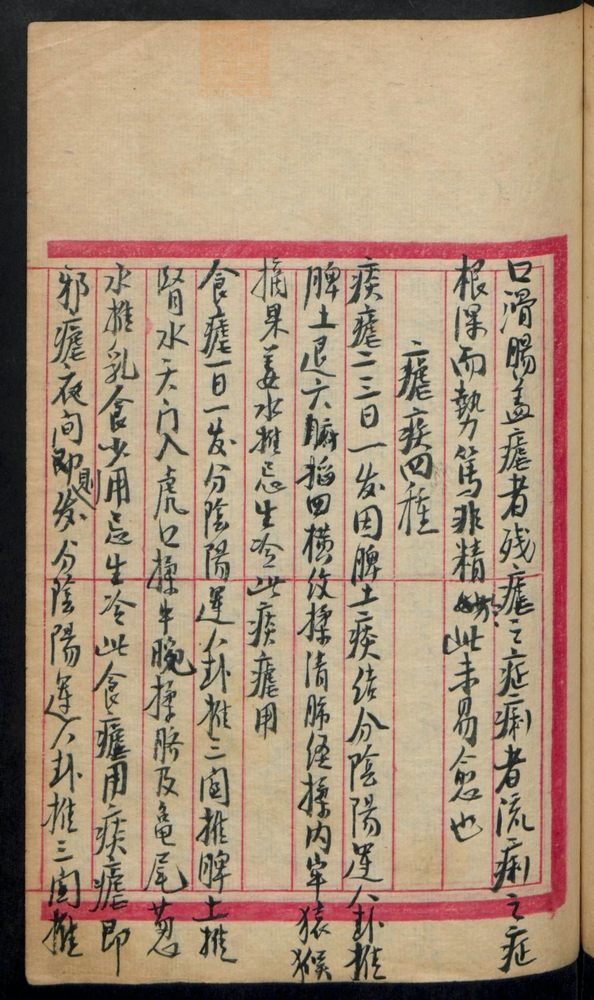 口滑腸盖瘧者残瘧之症痢者流痢之症
根深而勢篤非精於此未易愈也
瘧疾四種
痰瘧二三日一发因脾土痰结分陰陽運八卦推
脾土退六腑掐四横纹揉清肺经揉内牢猿猴
摘果姜水推忌生冷此痰瘧用
食瘧一日一发分陰陽運八卦推三関推脾土推
腎水天门入虎口揉牛腕揉脐及龟尾葱
水推乳食少用忌生冷此食瘧用痰瘧即
邪瘧夜间即則发分陰陽運八卦推三関推